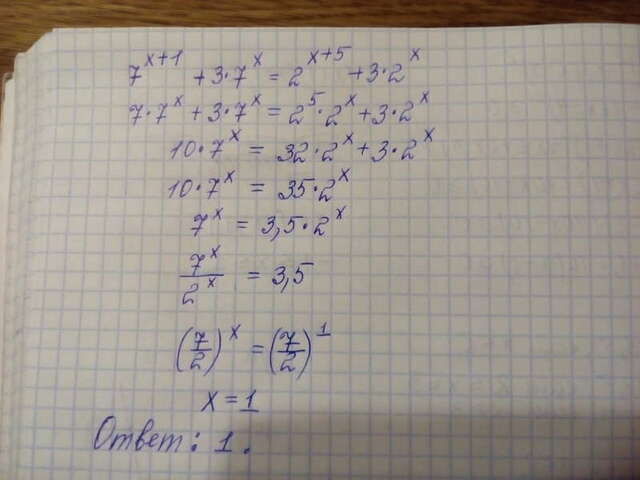 7^(x+1) + 3·7^x = 2^(x+5) + 3·2^x
7·7^x + 3·7^x = 2^5·2^x + 3·2^x
10·7^x = 32·2^x + 3·2^x
10·7^x = 35·2^x
7^x = 3,5·2^x
7^x/2^x = 3,5
(7/2)^x = (7/2)^1
x = 1
Ответ: 1.